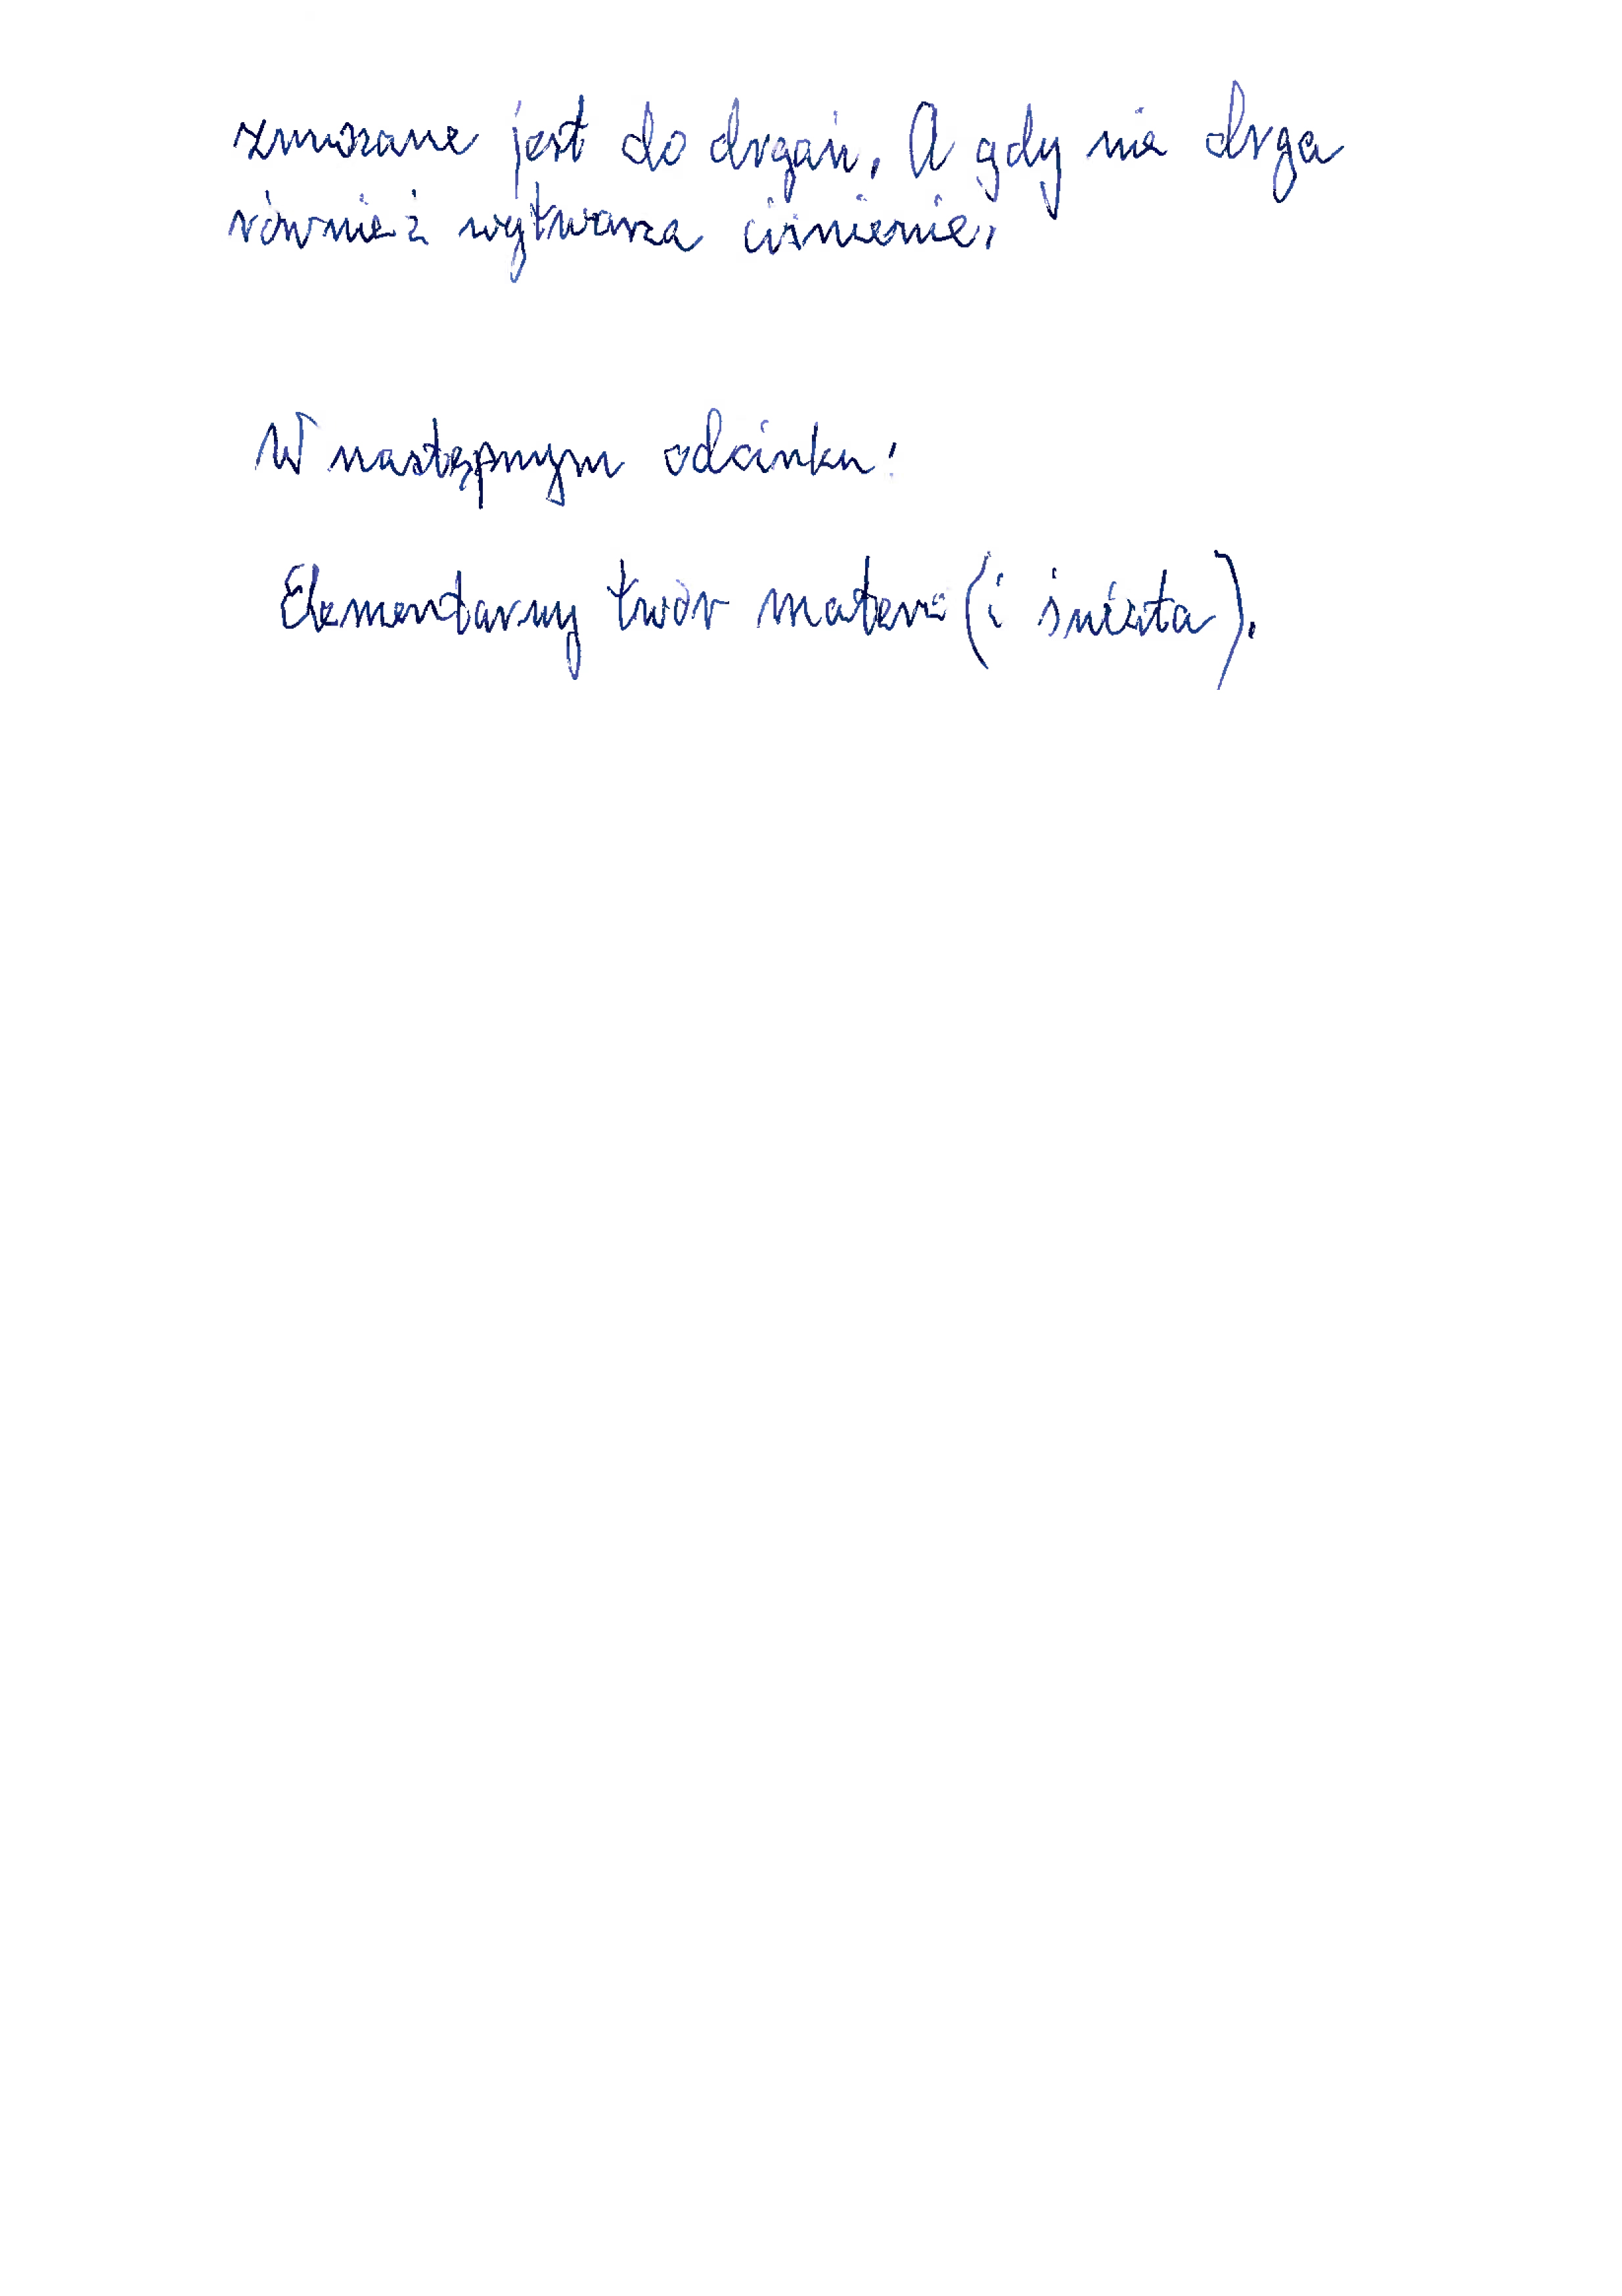 zmuszane jest do drgań. A gdy nie drga
również wytwarza ciśnienie.
W następnym odcinku:
Elementarny twór materii (i świata).